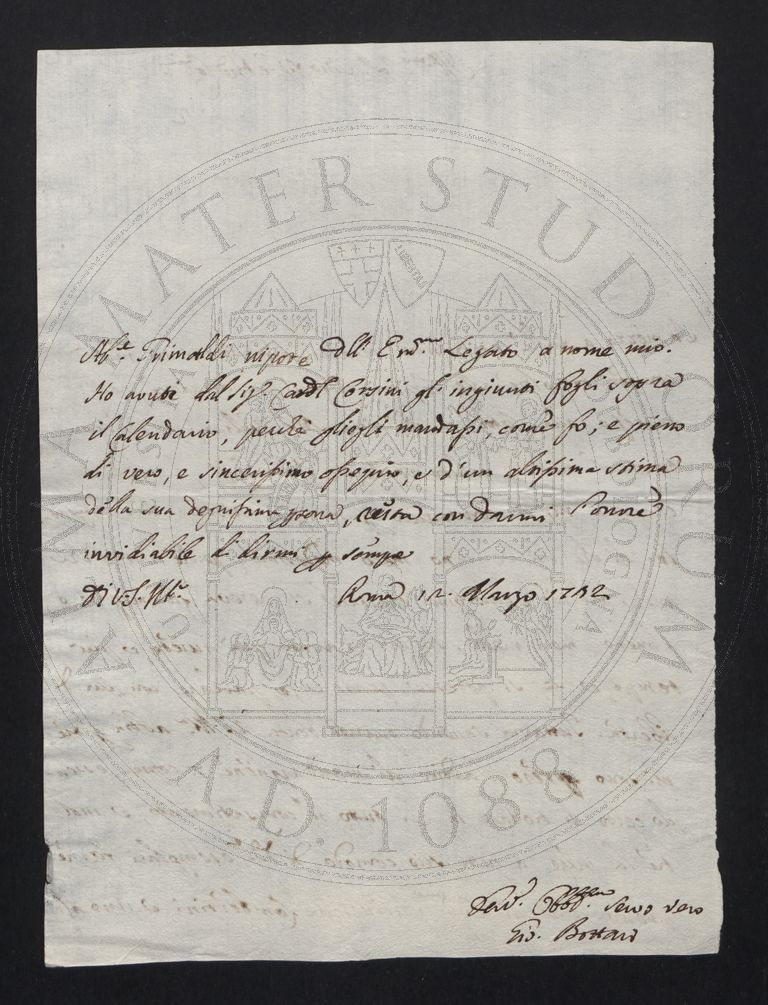 ALMA MATER STUDIORUM
A.D. 1088
LIBERTAS
Ab.te Grimaldi nipote dell' Em.mo Legato a nome mio.
Ho avuti dal Sig.r Card.l Corsini gl' ingiunti fogli sopra
il Calendario, perchè gliegli mandassi, come fo; e pieno
di vero, e sincerissimo ossequio, e d'un altissima stima
della sua degnissima persona, resta con darmi l'onore
invidiabile di dirmi per sempre
Di V.S. Ill.ma Roma 12. Marzo 1732
Dev.o Obb.mo Servo vero
Gio. Bottari